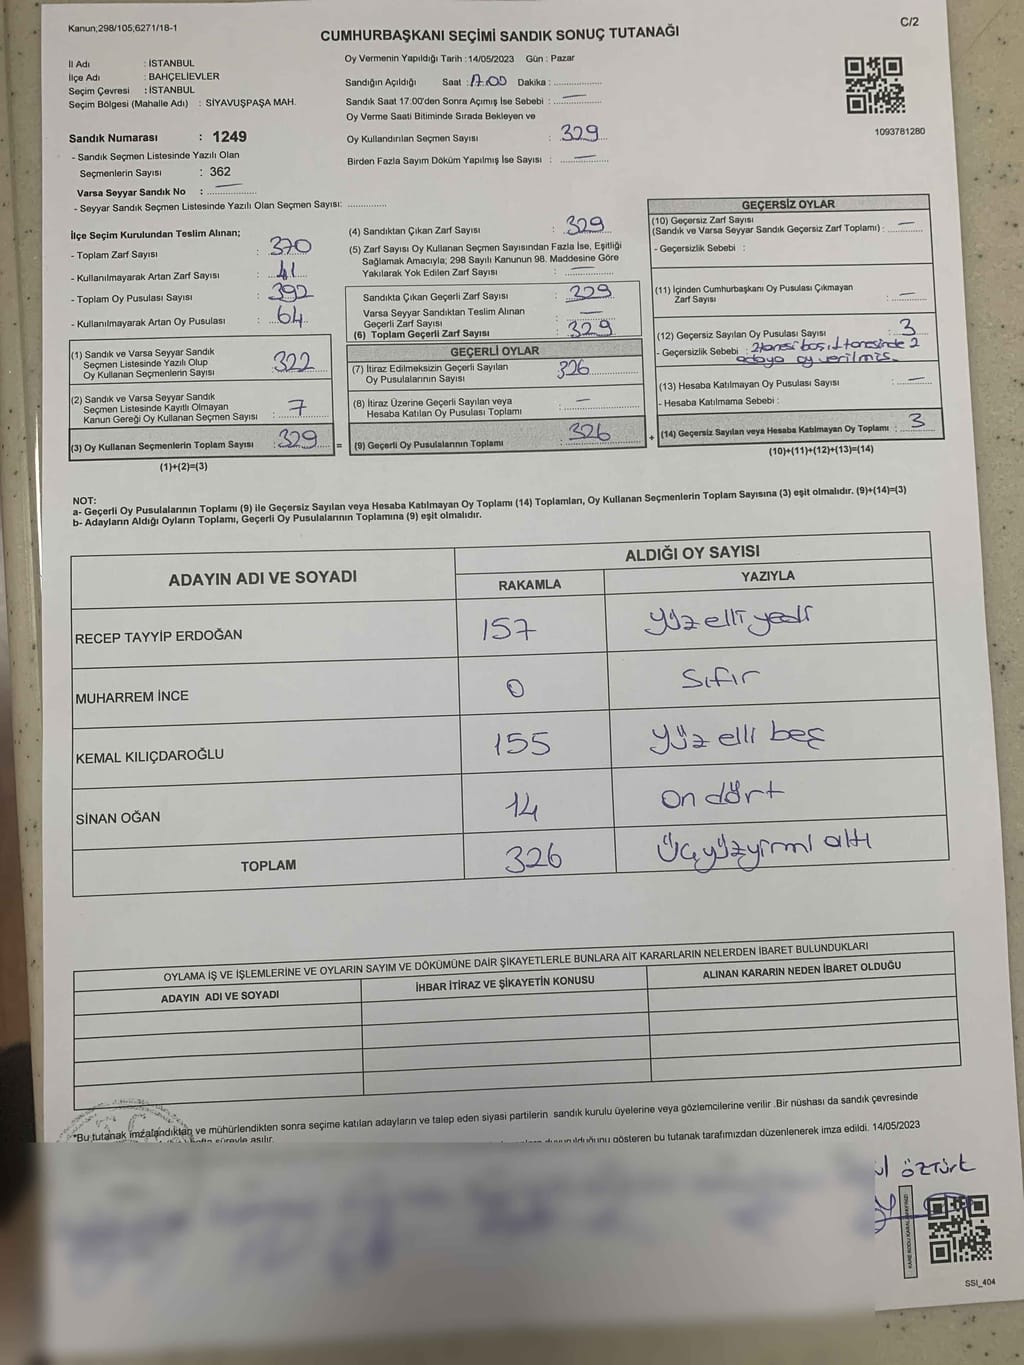 Kanun;298/105;6271/18-1
C/2
CUMHURBAŞKANI SEÇİMİ SANDIK SONUÇ TUTANAĞI
İl Adı : İSTANBUL
İlçe Adı : BAHÇELİEVLER
Seçim Çevresi : İSTANBUL
Seçim Bölgesi (Mahalle Adı) : SİYAVUŞPAŞA MAH.
Sandık Numarası : 1249
- Sandık Seçmen Listesinde Yazılı Olan
Seçmenlerin Sayısı : 362
Varsa Seyyar Sandık No : —
- Seyyar Sandık Seçmen Listesinde Yazılı Olan Seçmen Sayısı: ..............
Oy Vermenin Yapıldığı Tarih : 14/05/2023 Gün : Pazar
Sandığın Açıldığı Saat : 17.00 Dakika : ..............
Sandık Saat 17.00'den Sonra Açımış İse Sebebi : —
Oy Verme Saati Bitiminde Sırada Bekleyen ve
Oy Kullandırılan Seçmen Sayısı : 329
Birden Fazla Sayım Döküm Yapılmış İse Sayısı : —
1093781280
İlçe Seçim Kurulundan Teslim Alınan;
- Toplam Zarf Sayısı : 370
- Kullanılmayarak Artan Zarf Sayısı : 41
- Toplam Oy Pusulası Sayısı : 392
- Kullanılmayarak Artan Oy Pusulası : 64
(1) Sandık ve Varsa Seyyar Sandık
Seçmen Listesinde Yazılı Olup
Oy Kullanan Seçmenlerin Sayısı : 322
(2) Sandık ve Varsa Seyyar Sandık
Seçmen Listesinde Kayıtlı Olmayan
Kanun Gereği Oy Kullanan Seçmen Sayısı : 7
(3) Oy Kullanan Seçmenlerin Toplam Sayısı : 329
(1)+(2)=(3)
=
(4) Sandıktan Çıkan Zarf Sayısı : 329
(5) Zarf Sayısı Oy Kullanan Seçmen Sayısından Fazla İse, Eşitliği
Sağlamak Amacıyla; 298 Sayılı Kanunun 98. Maddesine Göre
Yakılarak Yok Edilen Zarf Sayısı : —
Sandıkta Çıkan Geçerli Zarf Sayısı : 329
Varsa Seyyar Sandıktan Teslim Alınan
Geçerli Zarf Sayısı : —
(6) Toplam Geçerli Zarf Sayısı : 329
GEÇERLİ OYLAR
(7) İtiraz Edilmeksizin Geçerli Sayılan
Oy Pusulalarının Sayısı : 326
(8) İtiraz Üzerine Geçerli Sayılan veya
Hesaba Katılan Oy Pusulası Toplamı : —
(9) Geçerli Oy Pusulalarının Toplamı : 326
+
GEÇERSİZ OYLAR
(10) Geçersiz Zarf Sayısı
(Sandık ve Varsa Seyyar Sandık Geçersiz Zarf Toplamı) : —
- Geçersizlik Sebebi :
(11) İçinden Cumhurbaşkanı Oy Pusulası Çıkmayan
Zarf Sayısı : —
(12) Geçersiz Sayılan Oy Pusulası Sayısı : 3
- Geçersizlik Sebebi : 2 tanesi boş, 1 tanesinde 2
adaya oy verilmiş.
(13) Hesaba Katılmayan Oy Pusulası Sayısı : —
- Hesaba Katılmama Sebebi :
(14) Geçersiz Sayılan veya Hesaba Katılmayan Oy Toplamı : 3
(10)+(11)+(12)+(13)=(14)
NOT:
a- Geçerli Oy Pusulalarının Toplamı (9) ile Geçersiz Sayılan veya Hesaba Katılmayan Oy Toplamı (14) Toplamları, Oy Kullanan Seçmenlerin Toplam Sayısına (3) eşit olmalıdır. (9)+(14)=(3)
b- Adayların Aldığı Oyların Toplamı, Geçerli Oy Pusulalarının Toplamına (9) eşit olmalıdır.
ADAYIN ADI VE SOYADI
ALDIĞI OY SAYISI
RAKAMLA YAZIYLA
RECEP TAYYİP ERDOĞAN 157 yüz elli yedi
MUHARREM İNCE 0 Sıfır
KEMAL KILIÇDAROĞLU 155 yüz elli beş
SİNAN OĞAN 14 on dört
TOPLAM 326 Üçyüzyirmi altı
OYLAMA İŞ VE İŞLEMLERİNE VE OYLARIN SAYIM VE DÖKÜMÜNE DAİR ŞİKAYETLERLE BUNLARA AİT KARARLARIN NELERDEN İBARET BULUNDUKLARI
ADAYIN ADI VE SOYADI İHBAR İTİRAZ VE ŞİKAYETİN KONUSU ALINAN KARARIN NEDEN İBARET OLDUĞU
*Bu tutanak imzalandıktan ve mühürlendikten sonra seçime katılan adayların ve talep eden siyasi partilerin sandık kurulu üyelerine veya gözlemcilerine verilir .Bir nüshası da sandık çevresinde
süreyle asılır.
duyurulduğunu gösteren bu tutanak tarafımızdan düzenlenerek imza edildi. 14/05/2023
öztürk
SSI_404